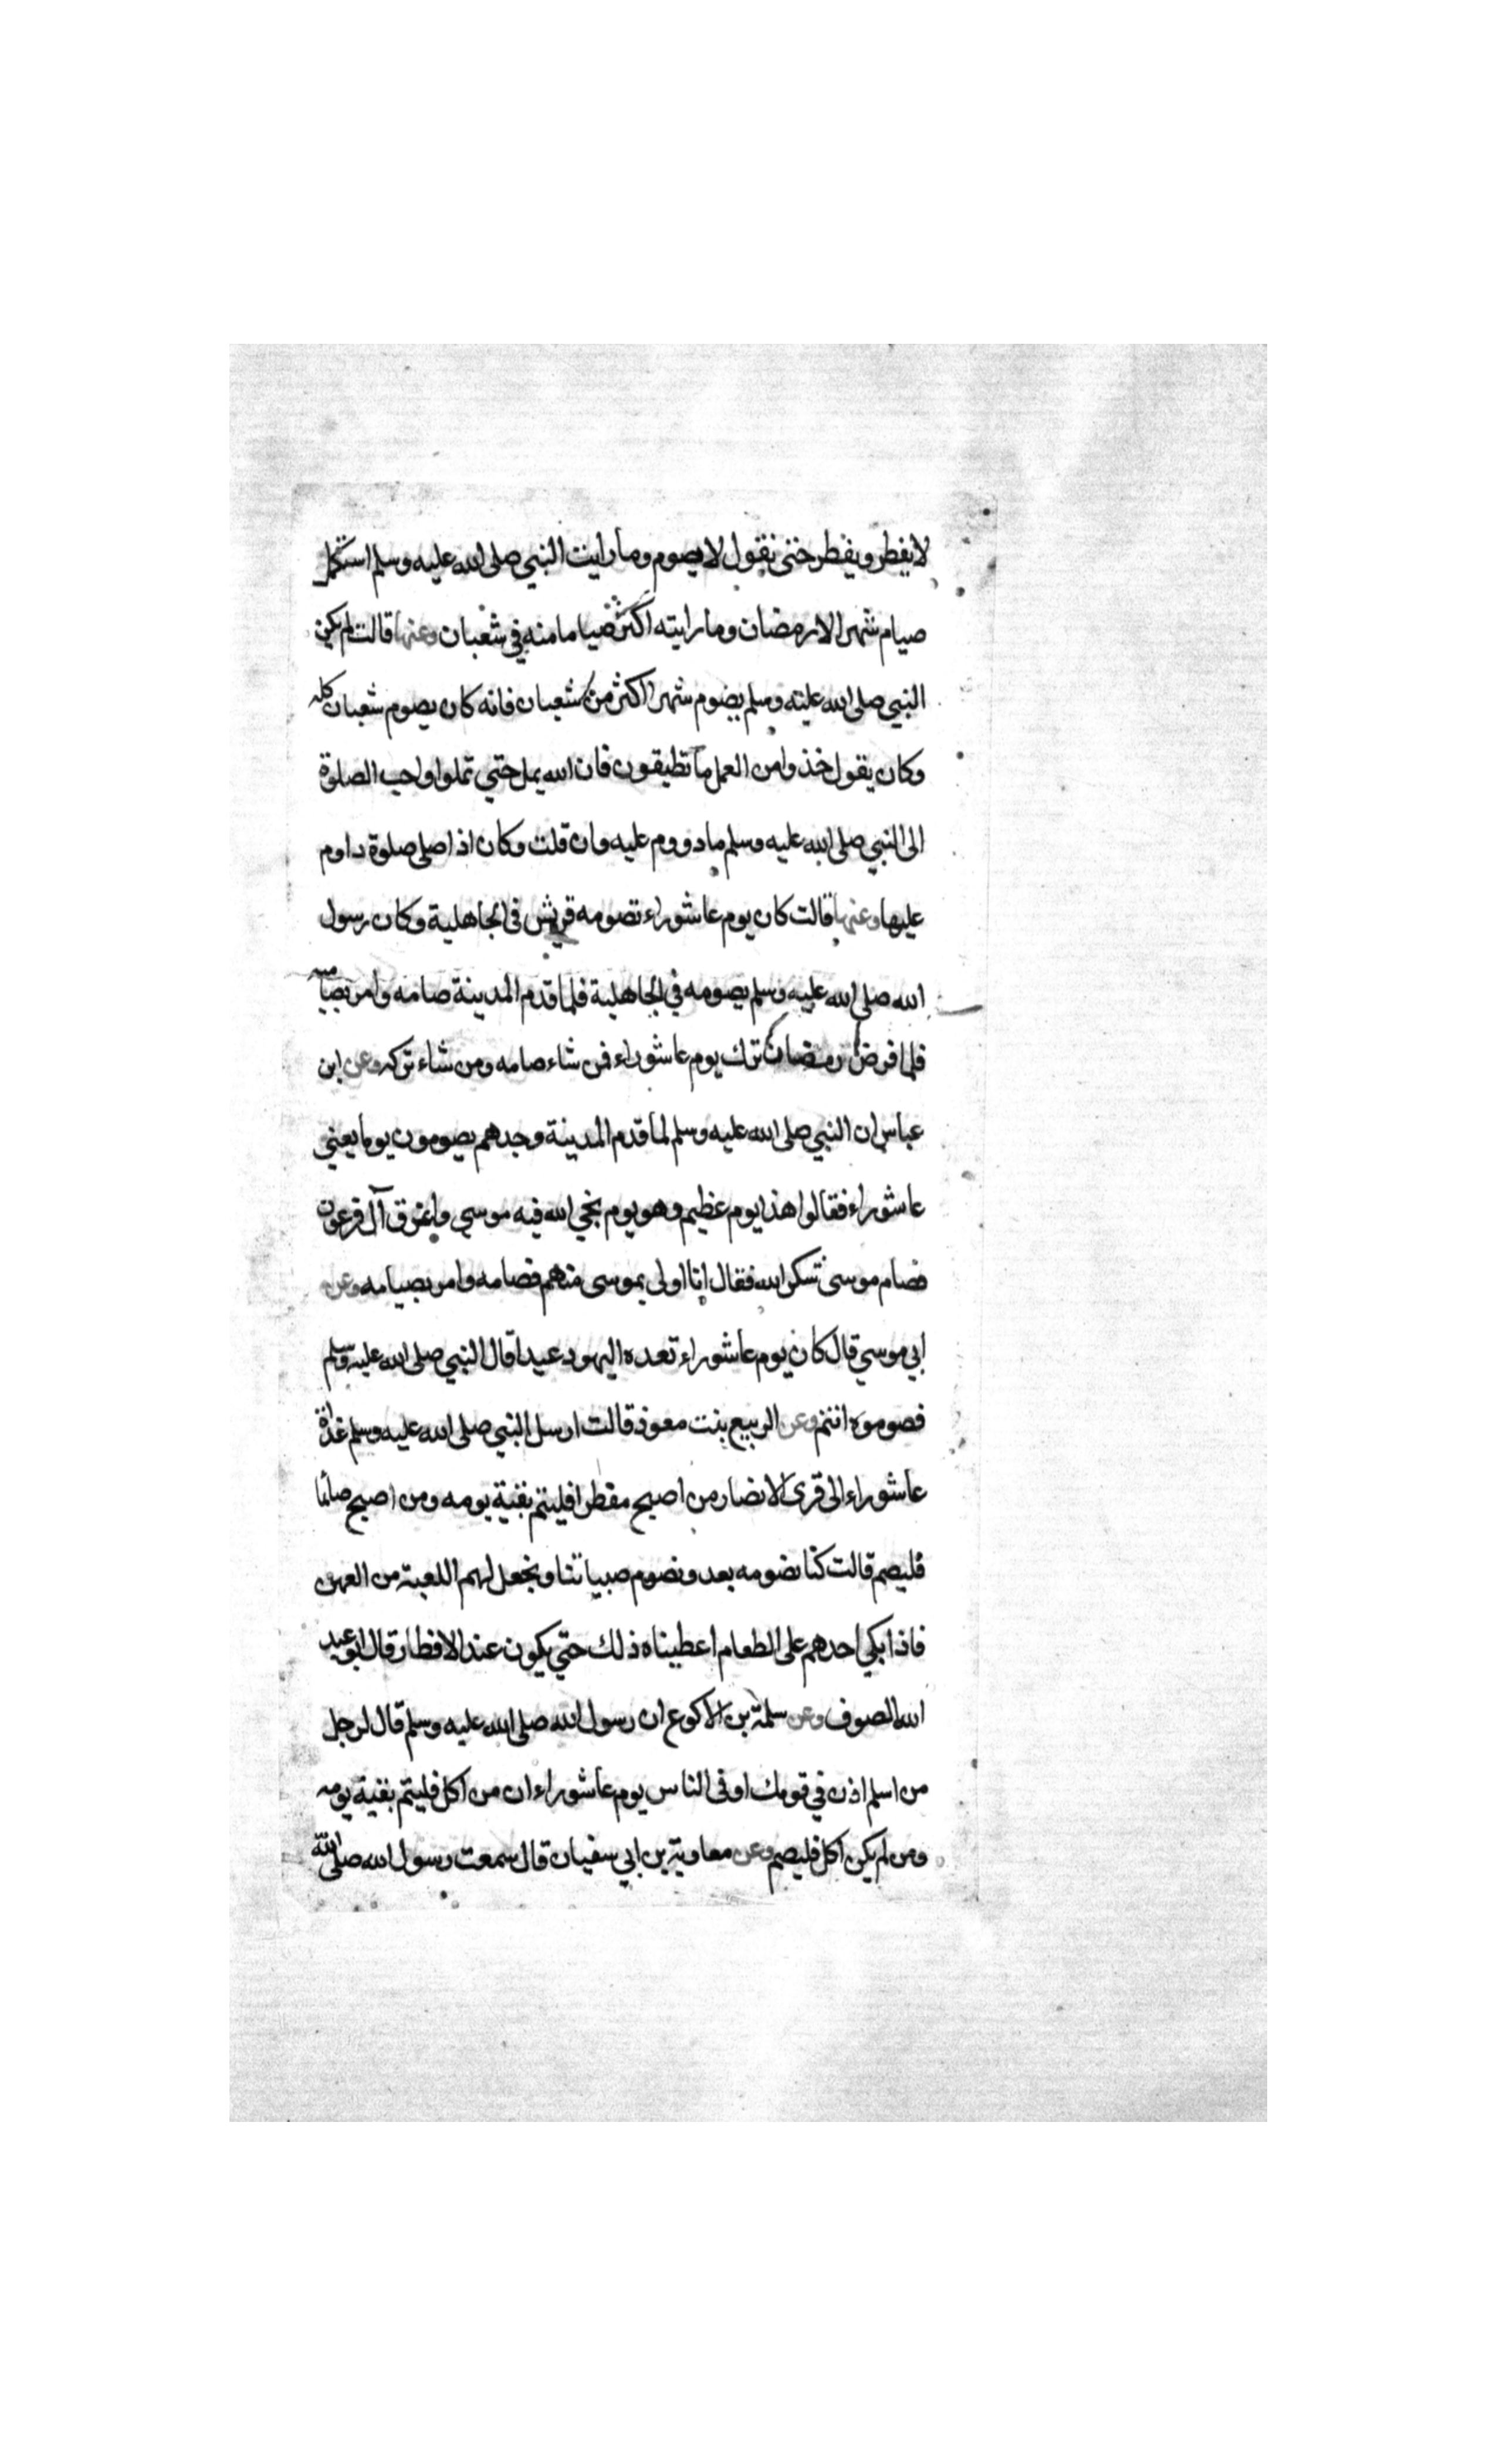 لا يفطر ويفطر حتى نقول لا يصوم وما رايت النبي صلى الله عليه وسلم استكمل
صيام شهر الا رمضان وما رايته اكثر صياما منه في شعبان وعنها قالت لم يكن
النبي صلى الله عليه وسلم يصوم شهرا اكثر من شعبان فانه كان يصوم شعبان كله
وكان يقول خذوا من العمل ما تطيقون فان الله يمل حتي تملوا واحب الصلوة
الى النبي صلى الله عليه وسلم ما دووم عليه وان قلت وكان اذا صلى صلوة داوم
عليها وعنها قالت كان يوم عاشوراء تصومه قريش في الجاهلية وكان رسول
الله صلى الله عليه وسلم يصومه في الجاهلية فلما قدم المدينة صامه وامر بصيامه
فلما فرض رمضان ترك يوم عاشوراء فمن شاء صامه ومن شاء تركه وعن ابن
عباس ان النبي صلى الله عليه وسلم لما قدم المدينة وجدهم يصومون يوما يعني
عاشوراء فقالوا هذا يوم عظيم وهو يوم نجي الله فيه موسي واغرق آل فرعون
فصام موسى شكرا لله فقال انا اولى بموسى منهم فصامه وامر بصيامه وعن
ابي موسي قال كان يوم عاشوراء تعده اليهود عيدا قال النبي صلى الله عليه وسلم
فصوموه انتم وعن الربيع بنت معوذ قالت ارسل النبي صلى الله عليه وسلم غداة
عاشوراء الى قرى الانصار من اصبح مفطرا فليتم بقية يومه ومن اصبح صائما
فليصم قالت كنا نصومه بعد ونصوم صبياننا ونجعل لهم اللعبة من العهن
فاذا بكي احدهم على الطعام اعطيناه ذلك حتي يكون عند الافطار قال ابو عبد
الله الصوف وعن سلمة بن الاكوع ان رسول الله صلى الله عليه وسلم قال لرجل
من اسلم اذن في قومك او في الناس يوم عاشوراء ان من اكل فليتم بقية يومه
ومن لم يكن اكل فليصم وعن معاوية بن ابي سفيان قال سمعت رسول الله صلى الله